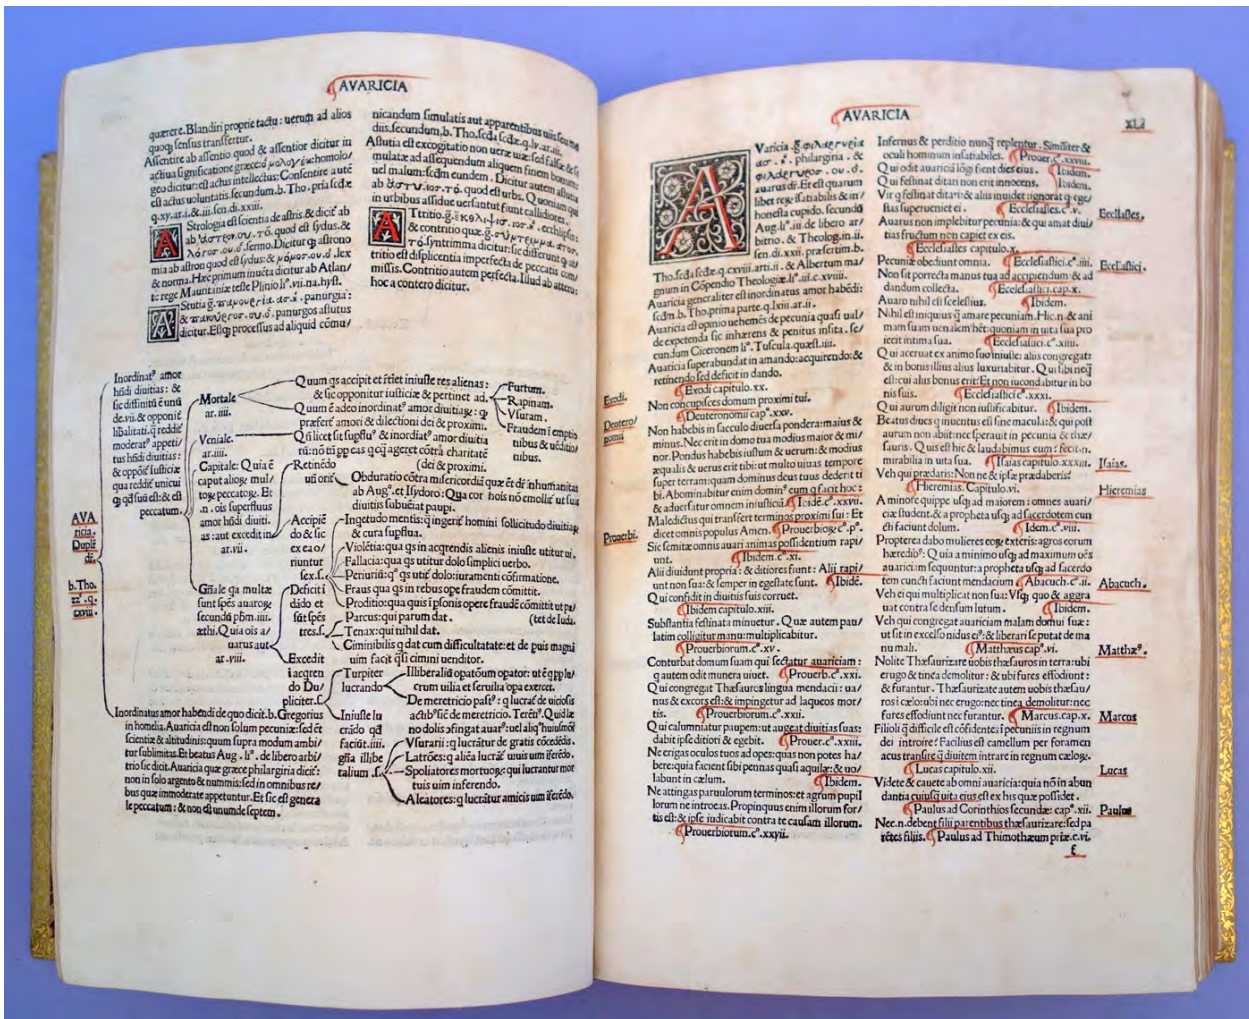 AVARICIA
quærere. Blandiri proprie tactu: uerum ad alios
quoq; sensus transfertur.
Assentire ab assentio quod & assentior dicitur in
actiua significatione græce: ὁμολογέω: homolo/
geo dicitur: est actus intellectus: Consentire auté
est actus uoluntatis. secundum. b. Tho. pria scdæ
q. xv. ar. i. & .iii. sen. di. xxiii.
Astrologia est scientia de astris. & dicit ab
ab ἄστρον. ου. τό. quod est sydus. &
λόγοσ. ου. ὁ. sermo. Dicitur q; astrono
mia ab astron quod est sydus: & μόμοσ. ου. ὁ. lex
& norma. Hæc primum inuēta dicitur ab Atlan/
te rege Mauritaniæ teste Plinio li°. vii. na. hyst.
Astutia g̃. πανουργία. ασ. ἡ. panurgia:
& πανοῦργοσ. ου. ὁ. panurgos astutus
dicitur. Estq; processus ad aliquid cōmu/
nicandum simulatis aut apparentibus uiis
diis. secundum. b. Tho. scda scdæ. q. lv. ar. iii.
Astutia est excogitatio non ueræ uiæ: sed falsæ & si
mulatæ ad assequendum aliquem finem bonum:
uel malum: scdm eundem. Dicitur autem astutia
ab ἄστυ. ιοσ. τό. quod est urbs. Quoniam qui
in urbibus assidue uersantur fiunt callidiores.
Attritio. g̃. ἔκθλιψισ. ecthlipsis:
& contritio quæ. g̃. σύντριμμα. ατοσ.
τό. syntrimma dicitur: sic differunt q; at/
tritio est displicentia imperfecta de peccatis com/
missis. Contritio autem perfecta. Illud ab attero:
hoc a contero dicitur.
AVA
ricia.
Dupli
b. Tho.
cxviii.
Inordinat⁹ amor
hñdi diuitias: &
sic diffinitū ē unū
de. vii. & opponit
libalitati. q reddit
moderat⁹ appeti/
tus hñdi diuitias:
& oppoit Iusticiæ
qua reddit unicui
q; qd suū est: & est
peccatum.
Mortale
ar. iiii.
Quum qs accipit et rñet iniuste res alienas:
& sic opponitur iusticiæ & pertinet ad.
Furtum.
Rapinam.
Vsuram.
Fraudem ī emptio
nibus & uēditio/
nibus.
Quum ē adeo inordinat⁹ amor diuitiaȝ: q;
præfert amori & dilectioni dei & proximi.
Veniale.
ar. iiii.
Qñ licet sit supflu⁹ & inordiat⁹ amor diuitia
rū: nō tñ pp eas qcq ageret cōtra charitatē
(dei & proximi.
Capitale: Quia ē
caput alioȝ mul/
toȝ peccatoȝ. Et
.n. ois superfluus
amor hñdi diuiti.
as: aut excedit in
ar. vii.
Retinēdo
uñ orit
Obduratio cōtra misericordiā quæ et dr inhumanitas
ab Aug⁹. et Isydoro: Qua cor hois nō emollit ut sua
diuitiis subueniat paupi.
Accipiē
do & sic
ex ea o/
riuntur
sex. s.
Inqetudo mentis: q ingerit homini sollicitudo diuitiaȝ
& cura supflua.
Violētia: qua qs in acqrendis alienis iniuste utitur ui.
Fallacia: qua qs utitur dolo simplici uerbo.
Periuriū: q° qs utit dolo: iuramenti cōfirmatione.
Fraus qua qs in rebus ope fraudem cōmittit.
Proditio: qua quis ī psonis opere fraudē cōmittit ut pa/
(tet de Iuda.
Gñale ga multæ
sunt spēs auaroȝ
secundū phm. iiii.
æthi. Quia ois a/
uarus aut
ar. viii.
Deficit ī
dādo et
sūt spēs
tres. s.
Parcus: qui parum dat.
Tenax: qui nihil dat.
Ciminibilis q dat cum difficultatate: et de puis magnā
uim facit qsi cimini uenditor.
Excedit
ī acqren
do Du/
pliciter. s.
Turpiter
lucrando
Illiberaliū opatōum opator: utē qpp lu/
crum uilia et seruilia opa exercet.
De meretricio past⁹: q lucrat de uiciosis
actib⁹ sic de meretricio. Terēti⁹. Quid læ
no dolis afingat auar⁹: uel aliq huiusmōi
Iniuste lu
crādo qd
faciūt. iiii.
gñia illibe
ralium. s.
Vsurarii: q lucrātur de gratis cōcedēdis.
Latrōes: q aliēa lucrāt uiuis uim īferēdo.
Spoliatores mortuoȝ: qui lucrantur mor
tuis uim inferendo.
Aleatores: q lucrātur amicis uim īferēdo.
Inordinatus amor habendi de quo dicit. b. Gregorius
in homelia. Auaricia est non solum pecuniæ: sed et
scientiæ & altitudinis: quum supra modum ambi/
tur sublimitas. Et beatus Aug. li°. de libero arbi/
trio sic dicit. Auaricia quæ græce philargiria dicit:
non in solo argento & nummis: sed in omnibus re/
bus quæ immoderate appetuntur. Et sic est genera
le peccatum: & non est unum de septem.
AVARICIA
XLI
Avaricia. g̃. φιλαργυρία
ασ. ἡ. philargiria. &
φιλάργυροσ. ου. ὁ.
auarus dr. Et est quarum
libet reȝ isatiabilis & in/
honesta cupido. secundū
Aug. li°. iii. de libero ar/
bitrio. & Theolog. in. ii.
sen. di. xxii. præsertim. b.
Tho. scda scdæ. q. cxviii. arti. ii. & Albertum ma/
gnum in Cōpendio Theologiæ. li°. iii. c. xviii.
Auaricia generaliter est inordinatus amor habēdi:
scdm. b. Tho. prima parte. q. lxiii. ar. ii.
Auaricia est opinio uehemēs de pecunia quasi ual/
de expetenda sic inhærens & penitus insita. se/
cundum Ciceronem li°. Tuscula. quæst. iiii.
Auaricia superabundat in amando: acquirendo: &
retinendo sed deficit in dando.
Exodi capitulo. xx.
Exodi.
Non concupisces domum proximi tui.
Deuteronomii cap°. xxv.
Deutero/
nomii
Non habebis in sacculo diuersa pondera: maius &
minus. Nec erit in domo tua modius maior & mi/
nor. Pondus habebis iustum & uerum: & modius
æqualis & uerus erit tibi: ut multo uiuas tempore
super terram: quam dominus deus tuus dederit ti
bi. Abominabitur enim domin⁹ eum q facit hoc:
& aduersatur omnem iniusticiā. Ibidē. c°. xxvii.
Maledictus qui transfert terminos proximi sui: Et
dicet omnis populus Amen. Prouerbioȝ. c°. p°.
Prouerbi.
Sic semitæ omnis auari animas possidentium rapi/
unt. Ibidem. c°. xi.
Alii diuidunt propria: & ditiores fiunt: Alii rapi/
unt non sua: & semper in egestate sunt. Ibidē.
Qui confidit in diuitiis suis corruet.
Ibidem capitulo. xiii.
Substantia festinata minuetur. Quæ autem pau/
latim colligitur manu: multiplicabitur.
Prouerbiorum. c°. xv.
Conturbat domum suam qui sectatur auariciam:
q autem odit munera uiuet. Prouerb. c°. xxi.
Qui congregat Thæsauros lingua mendacii: ua/
nus & excors est: & impingetur ad laqueos mor/
tis. Prouerbiorum. c°. xxii.
Qui calumniatur paupem: ut augeat diuitias suas:
dabit ipse ditiori & egebit. Prouer. c°. xxiii.
Ne erigas oculos tuos ad opes: quas non potes ha/
bere: quia facient sibi pennas quasi aquilæ: & uo/
labunt in cælum. Ibidem.
Ne attingas paruulorum terminos: et agrum pupil
lorum ne introeas. Propinquus enim illorum for/
tis est: & ipse iudicabit contra te causam illorum.
Prouerbiorum. c°. xxvii.
Infernus & perditio nunq̃ replentur. Similiter &
oculi hominum insatiabiles. Prouer. c°. xxviii.
Qui odit auariciā lōgi fient dies eius. Ibidem.
Qui festinat ditari non erit innocens. Ibidem.
Vir q festinat ditari: & aliis inuidet: ignorat q; ege/
stas superueniet ei. Ecclesiastes. c°. v.
Eccl'astes.
Auarus non implebitur pecunia: & qui amat diui/
tias fructum non capiet ex eis.
Ecclesiastes capitulo. x.
Pecuniæ obediunt omnia. Ecclesiastici. c°. iiii.
Eccl'astici.
Non sit porrecta manus tua ad accipiendum: & ad
dandum collecta. Ecclesiastici. cap. x.
Auaro nihil est scelestius. Ibidem.
Nihil est iniquius q̃ amare pecuniam. Hic. n. & ani
mam suam uenalem hēt: quoniam in uita sua pro
iecit intima sua. Ecclesiastici. c°. xiiii.
Qui aceruat ex animo suo iniuste: aliis congregat:
& in bonis illius alius luxuriabitur. Qui sibi neq̃
est: cui alius bonus erit: Et non iucondabitur in bo
nis suis. Ecclesiastici c°. xxxi.
Qui aurum diligit non iustificabitur. Ibidem.
Beatus diues q inuentus est sine macula: & qui post
aurum non abiit: nec sperauit in pecunia & thæ/
sauris. Quis est hic & laudabimus eum: fecit. n.
mirabilia in uita sua. Isaias capitulo. xxxiii.
Isaias.
Veh qui prædaris: Non ne & ipse prædaberis?
Hieremias. Capitulo. vi.
Hieremias
A minore quippe usq; ad maiorem: omnes auari/
ciæ student. & a propheta usq; ad sacerdotem cun
cti faciunt dolum. Idem. c°. viii.
Propterea dabo mulieres eoȝ exteris: agros eorum
hæredib⁹: Quia a minimo usq; ad maximum oēs
auariciam sequuntur: a propheta usq; ad sacerdo
tem cuncti faciunt mendacium Abacuch. c°. ii.
Abacuch.
Veh ei qui multiplicat non sua: Vsq; quo & aggra
uat contra se densum lutum. Ibidem.
Veh qui congregat auariciam malam domui suæ:
ut sit in excelso nidus ei⁹: & liberari se putat de ma
nu mali. Matthæus cap°. vi.
Matthæ⁹.
Nolite Thæsaurizare uobis thæsauros in terra: ubi
erugo & tinea demolitur: & ubi fures effodiunt:
& furantur. Thæsaurizate autem uobis thæsau/
ros ī cælo: ubi nec erugo: nec tinea demolitur: nec
fures effodiunt nec furantur. Marcus. cap. x.
Marcus
Filioli q̃ difficile est cōfidentes ī pecuniis in regnum
dei introire? Facilius est camellum per foramen
acus transire q̃ diuitem intrare in regnum cæloȝ.
Lucas capitulo. xii.
Lucas
Videte & cauete ab omni auaricia: quia nō in abun
dantia cuiusq̃ uita eius est ex his quæ possidet.
Paulus ad Corinthios secundæ: cap°. xii.
Paulus
Nec. n. debent filii parentibus thæsaurizare: sed pa
rētes filiis. Paulus ad Thimothæum priæ. c. vi.
E